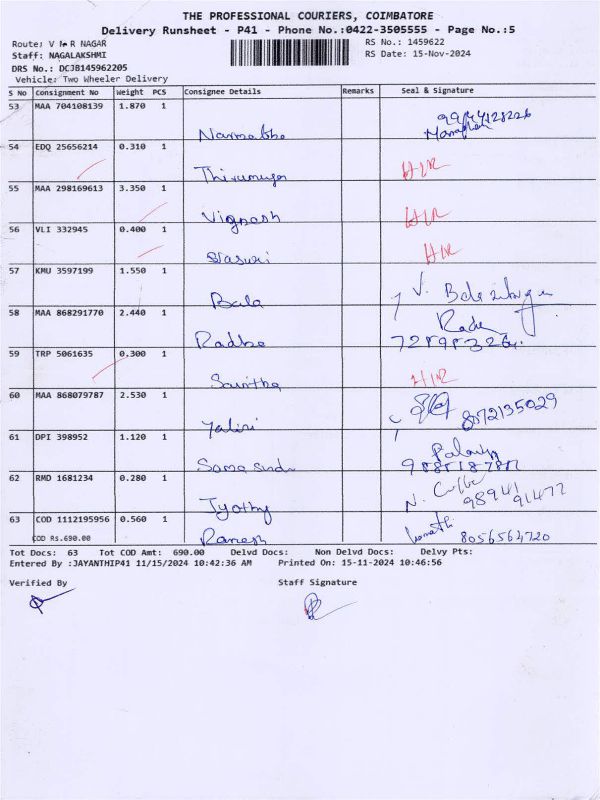 THE PROFESSIONAL COURIERS, COIMBATORE
Delivery Runsheet - P41 - Phone No.:0422-3505555 - Page No.:5
Route: V R NAGAR
RS No.: 1459622
Staff: NAGALAKSHMI
RS Date: 15-Nov-2024
DRS No.: DCJB145962205
Vehicle: Two Wheeler Delivery
S No Consignment No Weight PCS Consignee Details Remarks Seal & Signature
53 MAA 704108139 1.870 1
54 EDQ 25656214 0.310 1
H/R
55 MAA 298169613 3.350 1
Vignesh H/R
56 VLI 332945 0.400 1
H/R
57 KMU 3597199 1.550 1
Bala V.
58 MAA 868291770 2.440 1
Radha
59 TRP 5061635 0.300 1
H/R
60 MAA 868079787 2.530 1
8072135029
61 DPI 398952 1.120 1
62 RMD 1681234 0.280 1
Jyothy 98941 91477
63 COD 1112195956 0.560 1
COD Rs.690.00
Ramesh 8056564720
Tot Docs: 63 Tot COD Amt: 690.00 Delvd Docs: Non Delvd Docs: Delvy Pts:
Entered By :JAYANTHIP41 11/15/2024 10:42:36 AM Printed On: 15-11-2024 10:46:56
Verified By Staff Signature